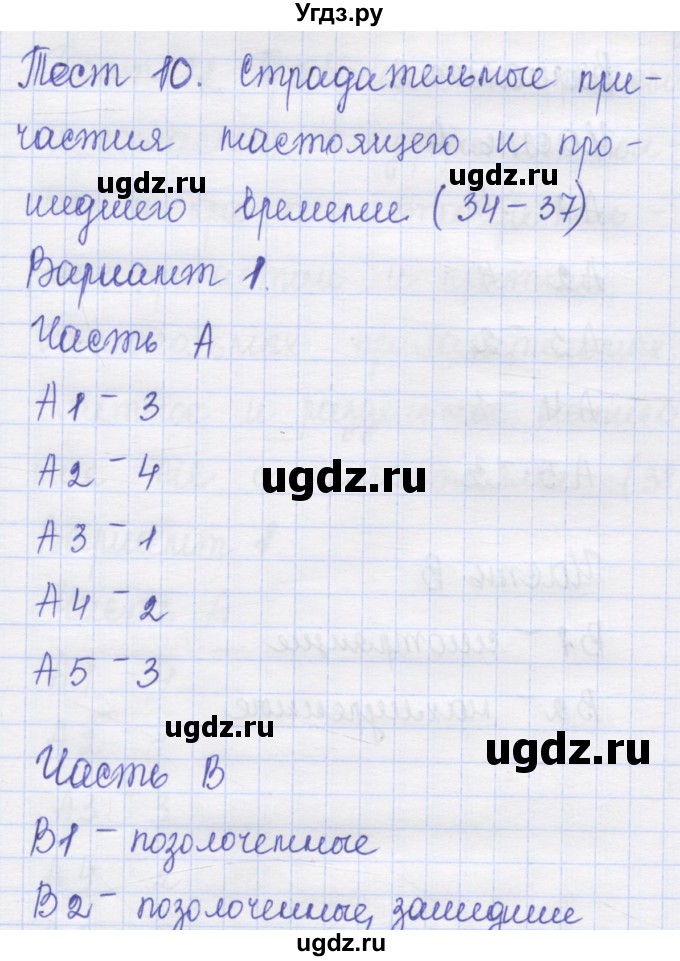 Угдз.ру
Тест 10. Страдательные при-
частия настоящего и про-
ugdz.ru
ugdz.ru
шедшего времени (34-37)
Вариант 1.
Часть А
А1 - 3
А2 - 4
ugdz.ru
А3 - 1
А4 - 2
А5 - 3
ugdz.ru
ugdz.ru
Часть В
В1 - позолоченные
В2 - позолоченные, зашедшие
ugdz.ru